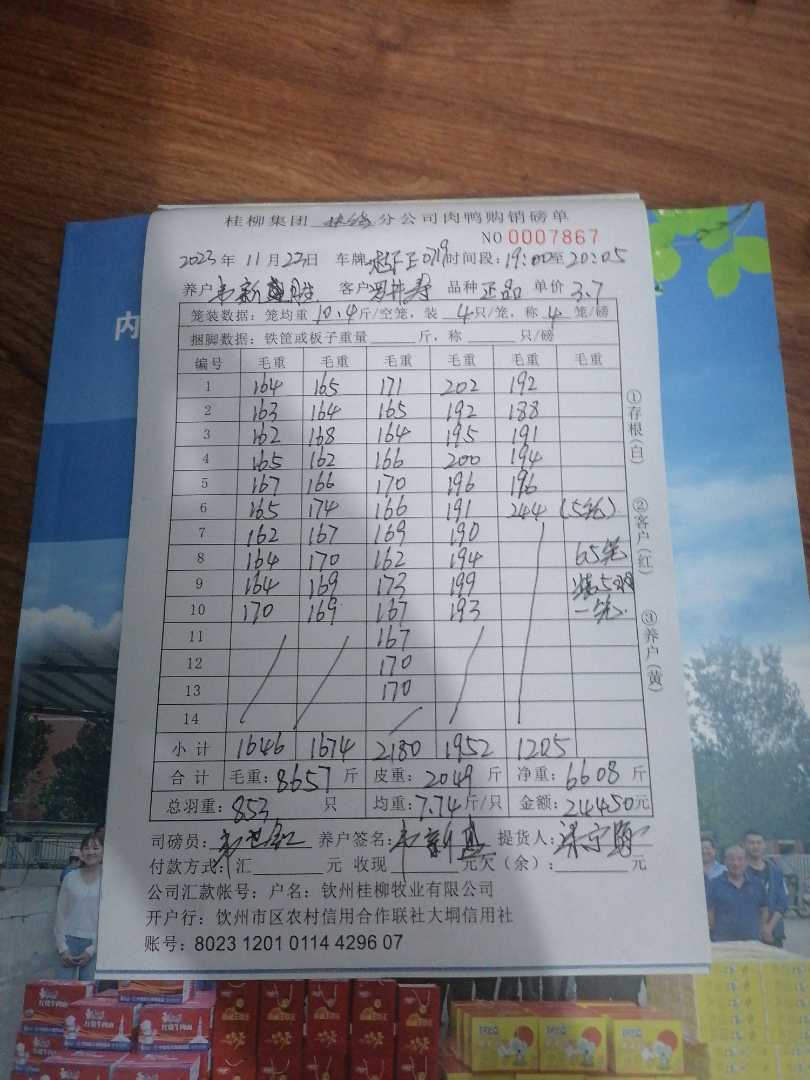 桂柳集团 分公司肉鸭购销磅单
NO 0007867
2023年 11月23日 车牌 0719 时间段: 19:00至20:05
养户 韦新 客户 品种 正品 单价 3.7
笼装数据: 笼均重 10.4 斤/空笼, 装 4 只/笼, 称 4 笼/磅
捆脚数据: 铁筐或板子重量 斤, 称 只/磅
编号 毛重 毛重 毛重 毛重 毛重 毛重
1 164 165 171 202 192
2 163 164 165 192 188
3 162 168 164 195 191
4 165 162 166 200 194
5 167 166 170 196 196
6 165 174 166 191 244 (5笼)
7 162 167 169 190
8 164 170 162 194 65笼
9 164 169 173 199 装5羽
10 170 169 167 193 一笼
11 167
12 170
13 170
14
小计 1646 1674 2180 1952 1205
合计 毛重: 8657 斤 皮重: 2049 斤 净重: 6608 斤
总羽重: 853 只 均重: 7.74 斤/只 金额: 24450 元
司磅员: 养户签名: 韦新 提货人:
付款方式: 汇 元 收现 元 欠(余): 元
公司汇款帐号: 户名: 钦州桂柳牧业有限公司
开户行: 钦州市区农村信用合作联社大垌信用社
账号: 8023 1201 0114 4296 07
①存根(白)
②客户(红)
③养户(黄)
内